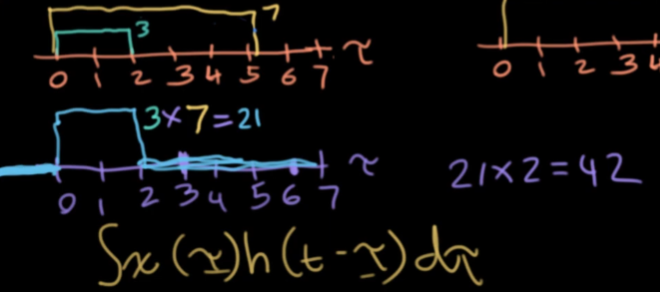 7
3
0 1 2 3 4 5 6 7 τ
0 1 2 3 4
3×7=21
τ
0 1 2 3 4 5 6 7
21×2=42
∫x(τ)h(t-τ)dτ